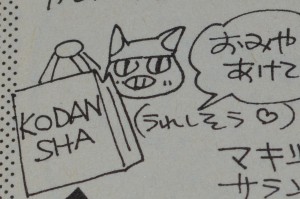 KODAN
SHA
おみや
あけて
(うれしそう♡)
マキ
サラン